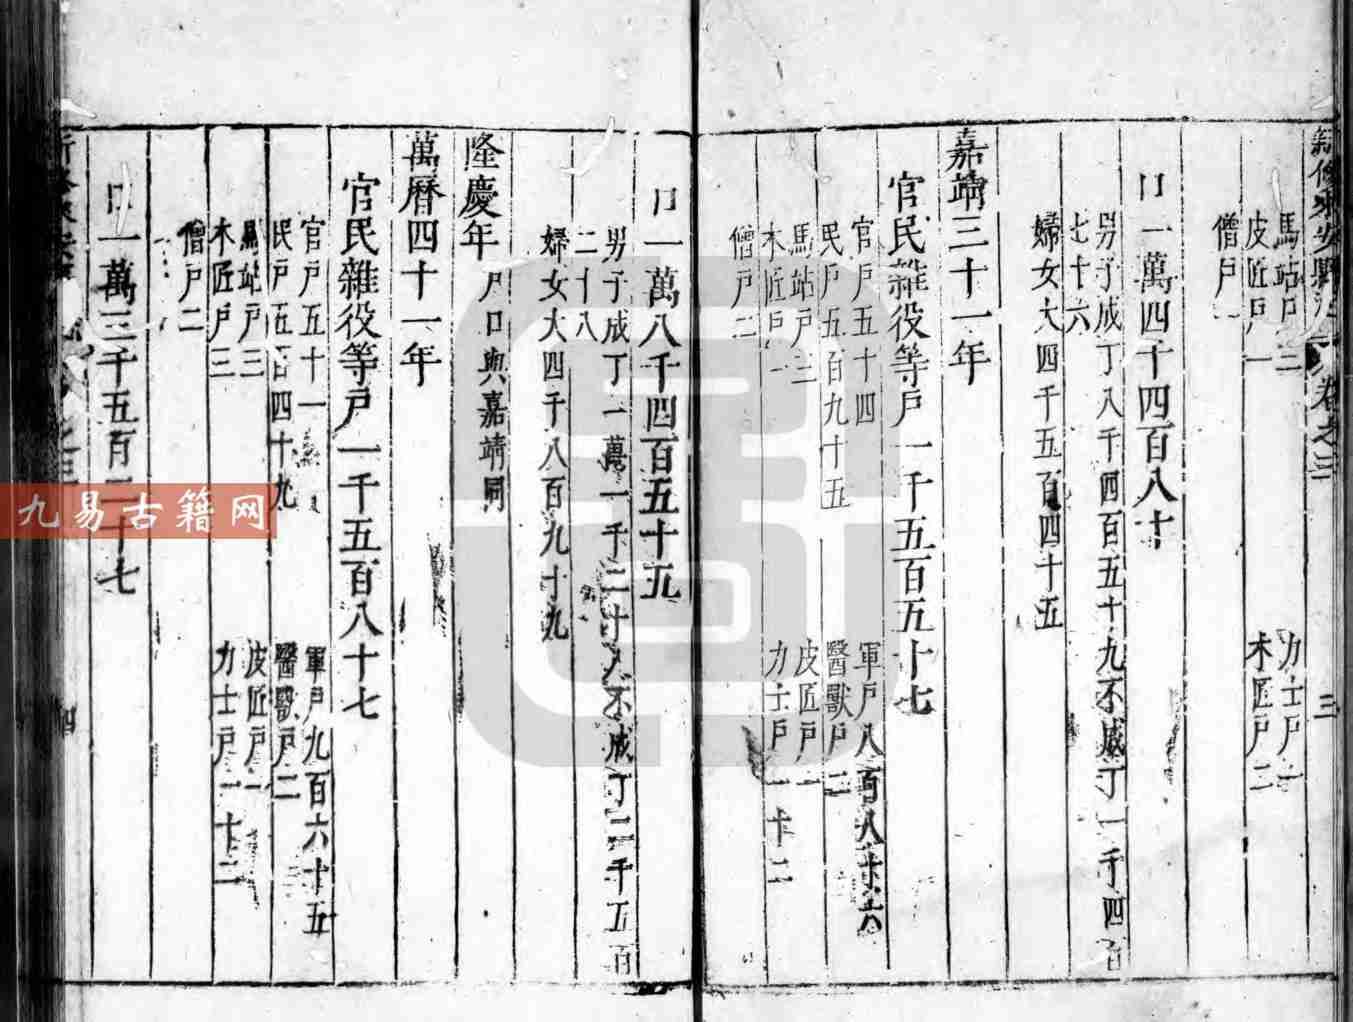 馬站戶三
力士戶一
皮匠戶一
木匠戶二
僧戶一
口一萬四千四百八十
男子成丁八千四百五十九不成丁一千四百
七十六
婦女大四千五百四十五
嘉靖三十一年
官民雜役等戶一千五百五十七
官戶五十四
軍戶八百八十六
民戶五百九十五
醫獸戶二
馬站戶三
皮匠戶一
木匠戶一
力士戶一十二
僧戶二
口一萬八千四百五十五
男子成丁一萬一千二十八不成丁二千五百
二十八
婦女大四千八百九十九
隆慶年戶口與嘉靖同
萬曆四十一年
官民雜役等戶一千五百八十七
官戶五十一
軍戶九百六十五
民戶五百四十九
醫獸戶二
馬站戶三
皮匠戶一
木匠戶三
力士戶一十二
僧戶二
口一萬三千五百二十七
卷之三
三
四
九易古籍网